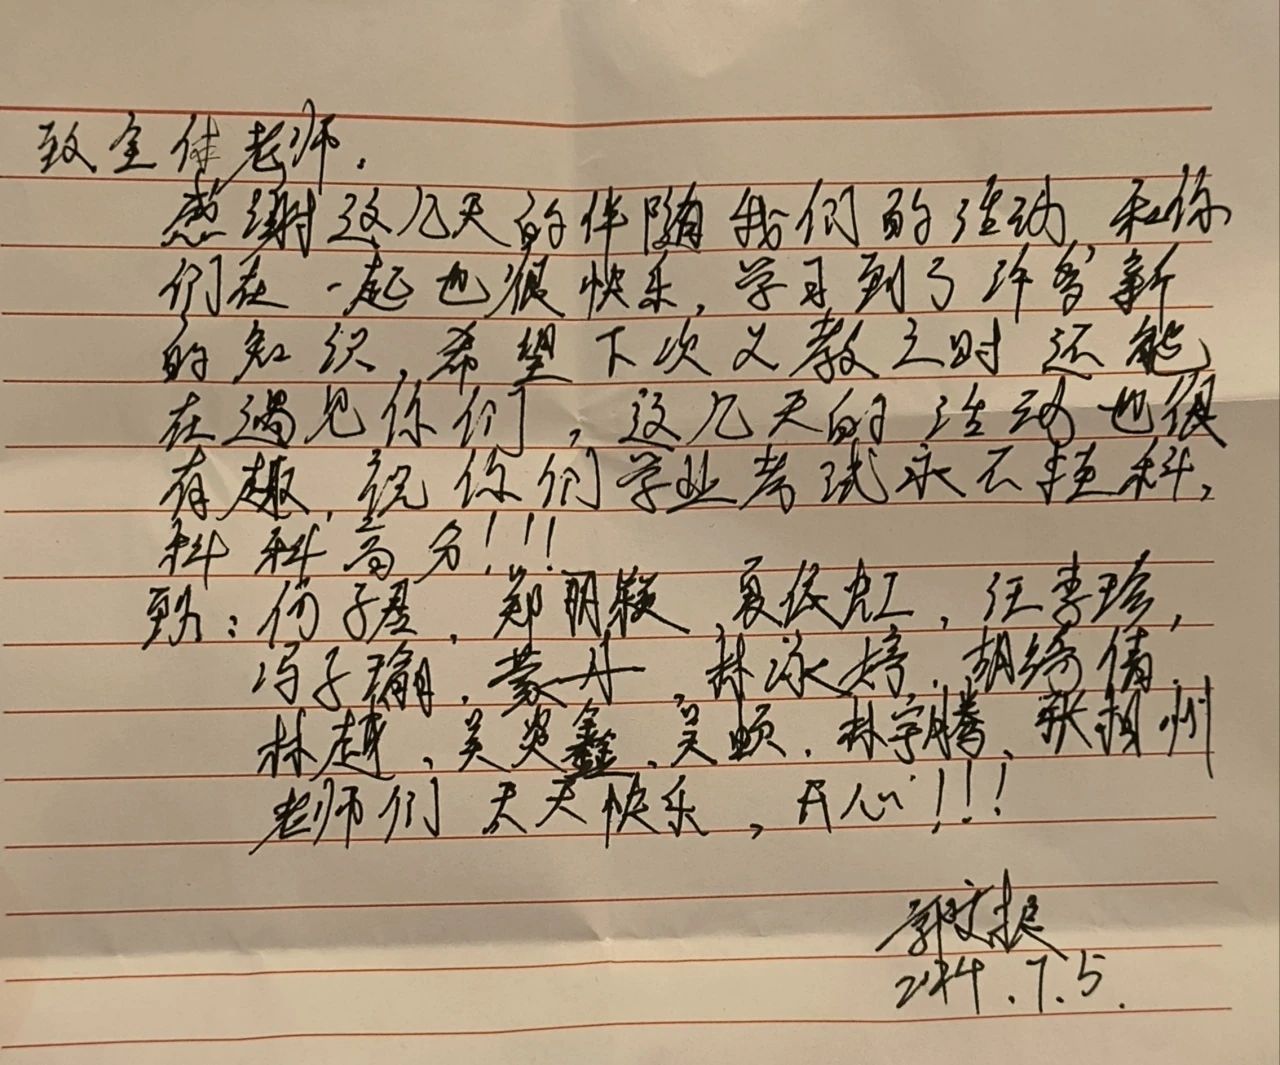 致全体老师.
感谢这几天的伴随我们的活动 和你
们在一起也很快乐, 学习到了许多新
的知识, 希望下次义教之时 还能
在遇见你们, 这几天的活动也很
有趣, 祝你们学业考试永不挂科,
科科高分!!!
致: 何子君, 郑明 夏依虹, 汪李珍,
冯子瑜, 蒙丹, 林泳婷, 胡绮倩,
林越, 吴炎鑫, 吴顺, 林宇腾, 张相州
老师们 天天快乐, 开心!!!
郭文振
2024.7.5.